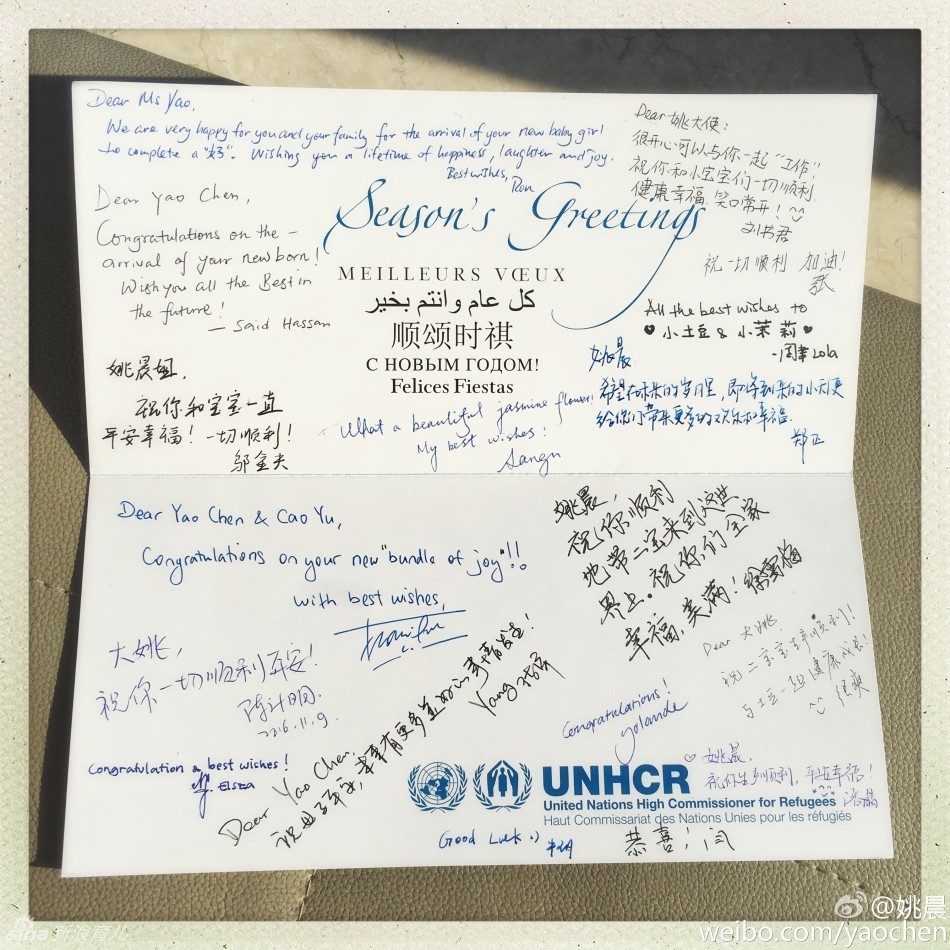 Dear Ms Yao,
We are very happy for you and your family for the arrival of your new baby girl
to complete a "好". Wishing you a lifetime of happiness, laughter and joy.
Best wishes,
Dear 姚大使：
很开心可以与你一起"工作"！
祝你和小宝宝们一切顺利，
健康幸福，笑口常开！
刘书君
Dear Yao Chen,
Congratulations on the
arrival of your newborn!
Wish you all the Best in
the future!
— Said Hassan
Season's Greetings
MEILLEURS VŒUX
كل عام وانتم بخير
顺颂时祺
С НОВЫМ ГОДОМ!
Felices Fiestas
祝一切顺利 加油！
张
All the best wishes to
♥ 小土豆 & 小茉莉 ♥
Lola
姚晨姐，
祝你和宝宝一直
平安幸福！一切顺利！
邬金夫
What a beautiful jasmine flower!
My best wishes!
Sangu
姚晨
希望在未来的岁月里，即将到来的小天使
给你们带来更多的欢乐和幸福。
郑正
Dear Yao Chen & Cao Yu,
Congratulations on your new "bundle of joy"!!
With best wishes,
姚晨，
祝你顺利
地带二宝来到这世
界上。祝你们全家
幸福，美满！徐雪梅
大姚，
祝你一切顺利平安！
2016.11.9.
Dear 大姚，
祝二宝宝生产顺利！
与土豆一起健康成长！
Dear Yao Chen,
有更多美好的事情发生！
Yang
Congratulations!
Yolande
Congratulation & best wishes!
Elsza
♡ 姚晨，
祝你生产顺利，平安幸福！
UNHCR
United Nations High Commissioner for Refugees
Haut Commissariat des Nations Unies pour les réfugiés
Good Luck :)
恭喜！闫
sina新浪育儿
@姚晨
weibo.com/yaochen